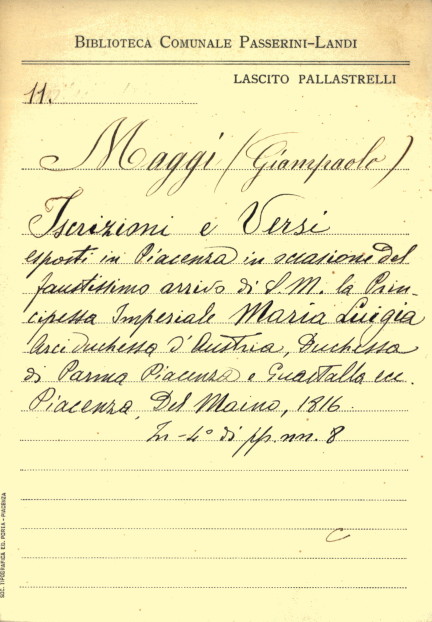 BIBLIOTECA COMUNALE PASSERINI-LANDI
LASCITO PALLASTRELLI
11.
Maggi (Giampaolo)
Iscrizioni e Versi
esposti in Piacenza in occasione del
faustissimo arrivo di S. M. la Prin-
cipessa Imperiale Maria Luigia
Arciduchessa d'Austria, Duchessa
di Parma Piacenza e Guastalla ecc.
Piacenza, Del Maino, 1816.
In-4° di pp. nn. 8
C
SOC. TIPOGRAFICA ED. PORTA - PIACENZA